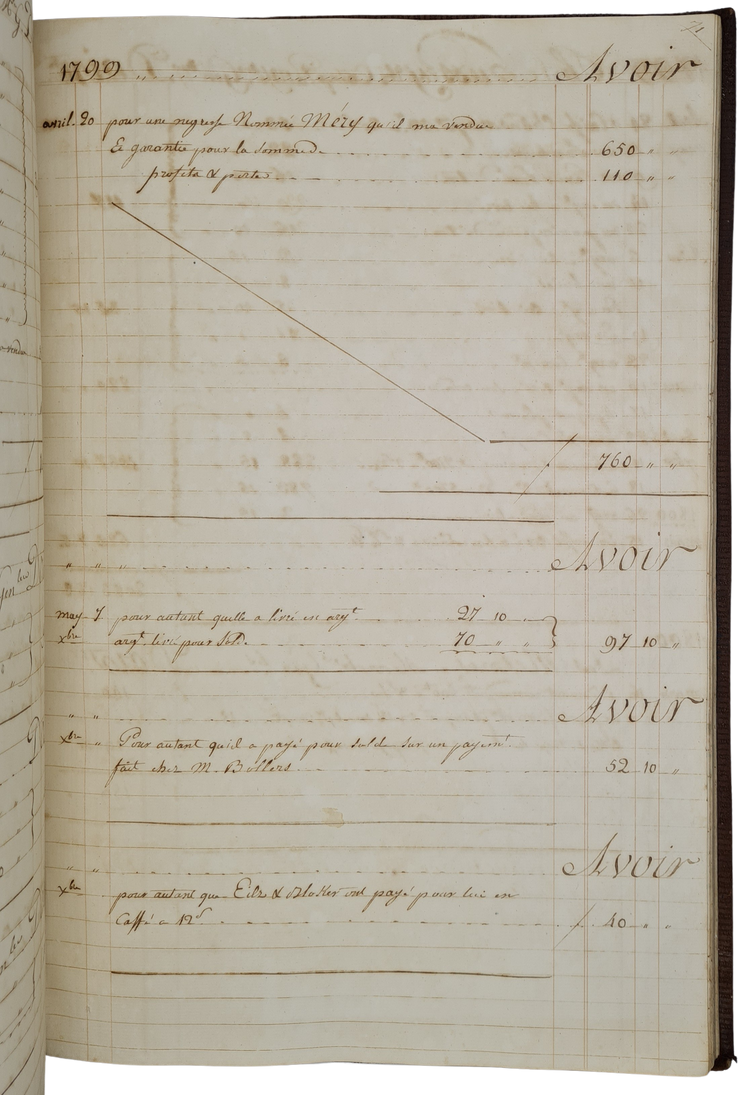 1799 Avoir
avril. 20 pour une negresse Nommée Méry qu'il ma vendue
Et garantie pour la somme de 650 " "
profits & pertes 110 " "
760 " "
" " " Avoir
may 7 pour autant quelle a livré en argt 27 10 "
xbre argt livré pour Solde 70 " " 97 10 "
" " Avoir
xbre " Pour autant qu'il a payé pour solde sur un payemt
fait chez M. Bollers 52 10 "
" " Avoir
xbre pour autant que & ont payé pour lui en
Caffé a 12s 40 " "